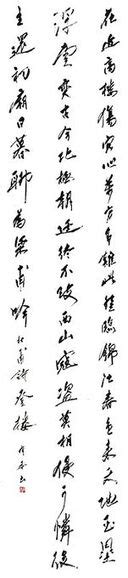 花近高樓傷客心萬方多難此登臨錦江春色來天地玉壘
浮雲變古今北極朝廷終不改西山寇盜莫相侵可憐後
主還祠廟日暮聊為梁甫吟 杜甫詩登樓